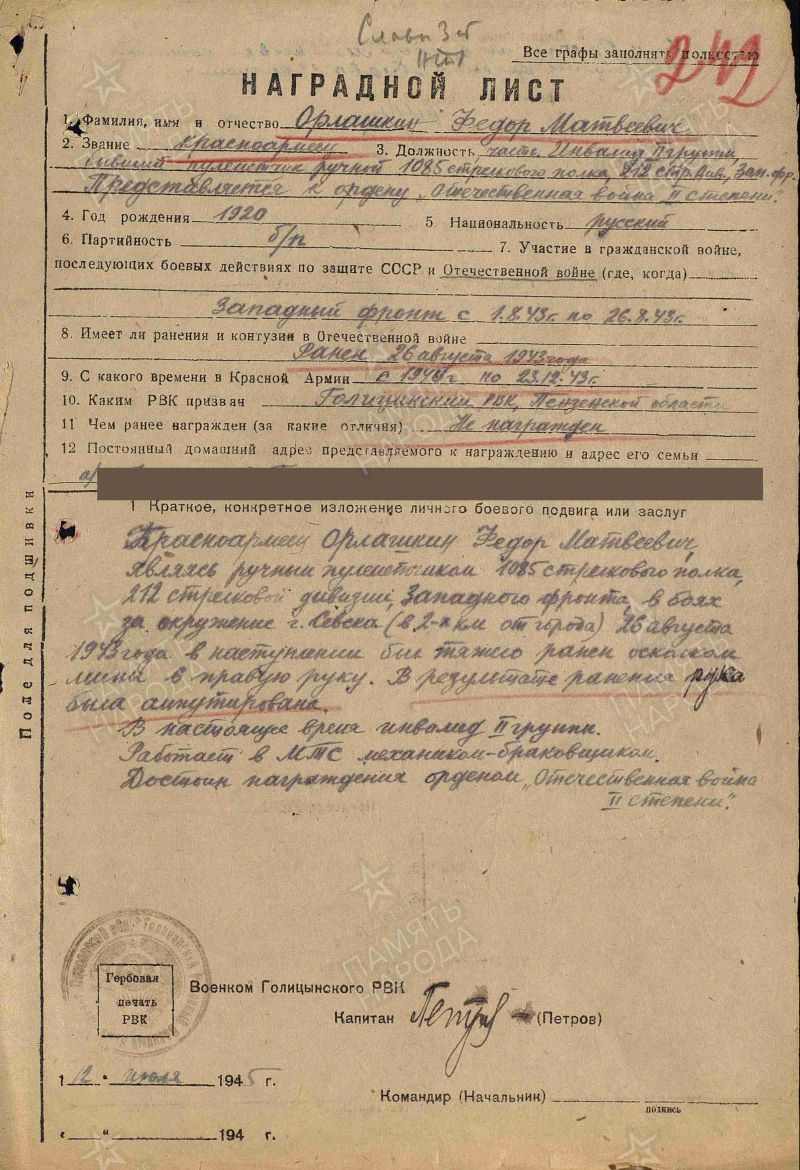 Славы 3 ст
Все графы заполнять полностью
242
НАГРАДНОЙ ЛИСТ
1. Фамилия, имя и отчество Орлашкин Федор Матвеевич
2. Звание красноармеец 3. Должность, часть Инвалид II группы,
бывший пулеметчик ручной 1085 стрелкового полка, 212 стр. див., Зап. фр.
Представляется к ордену „Отечественная война II степени".
4. Год рождения 1920 5. Национальность русский
6. Партийность б/п 7. Участие в гражданской войне,
последующих боевых действиях по защите СССР и Отечественной войне (где, когда)
Западный фронт с 1.8.43г. по 26.8.43г.
8. Имеет ли ранения и контузии в Отечественной войне
Ранен 26 августа 1943 года
9. С какого времени в Красной Армии с 1940г по 23.12.43г.
10. Каким РВК призван Голицинский РВК, Пензенской области
11 Чем ранее награжден (за какие отличия) Не награжден
12 Постоянный домашний адрес представляемого к награждению и адрес его семьи
1 Краткое, конкретное изложение личного боевого подвига или заслуг
Красноармеец Орлашкин Федор Матвеевич,
являясь ручным пулеметчиком 1085 стрелкового полка,
212 стрелковой дивизии, Западного фронта, в боях
за окружение г. Севска (в 2-х км от города) 26 августа
1943 года в наступлении был тяжело ранен осколком
мины в правую руку. В результате ранения рука
была ампутирована.
В настоящее время инвалид II группы.
Работает в МТС механиком-браковщиком.
Достоин награждения орденом „Отечественная война
II степени".
Поле для подшивки
Гербовая
печать
РВК
Военком Голицынского РВК
Капитан (Петров)
12 июля 1945 г.
Командир (Начальник)
подпись
" " 194 г.
ПАМЯТЬ
НАРОДА